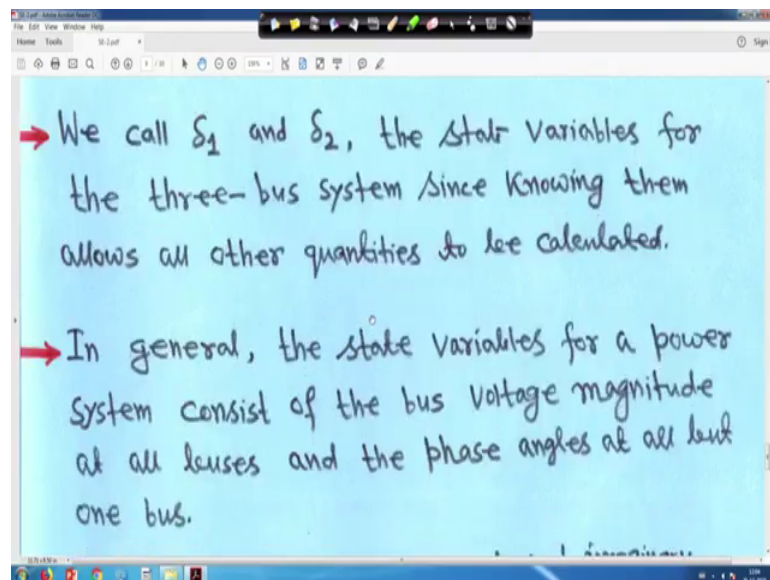 SE-2.pdf - Adobe Acrobat Reader DC
File Edit View Window Help
Home Tools SE-2.pdf × Sign
We call δ1 and δ2, the state variables for
the three-bus system since knowing them
allows all other quantities to be calculated.
In general, the state variables for a power
system consist of the bus voltage magnitude
at all buses and the phase angles at all but
one bus.